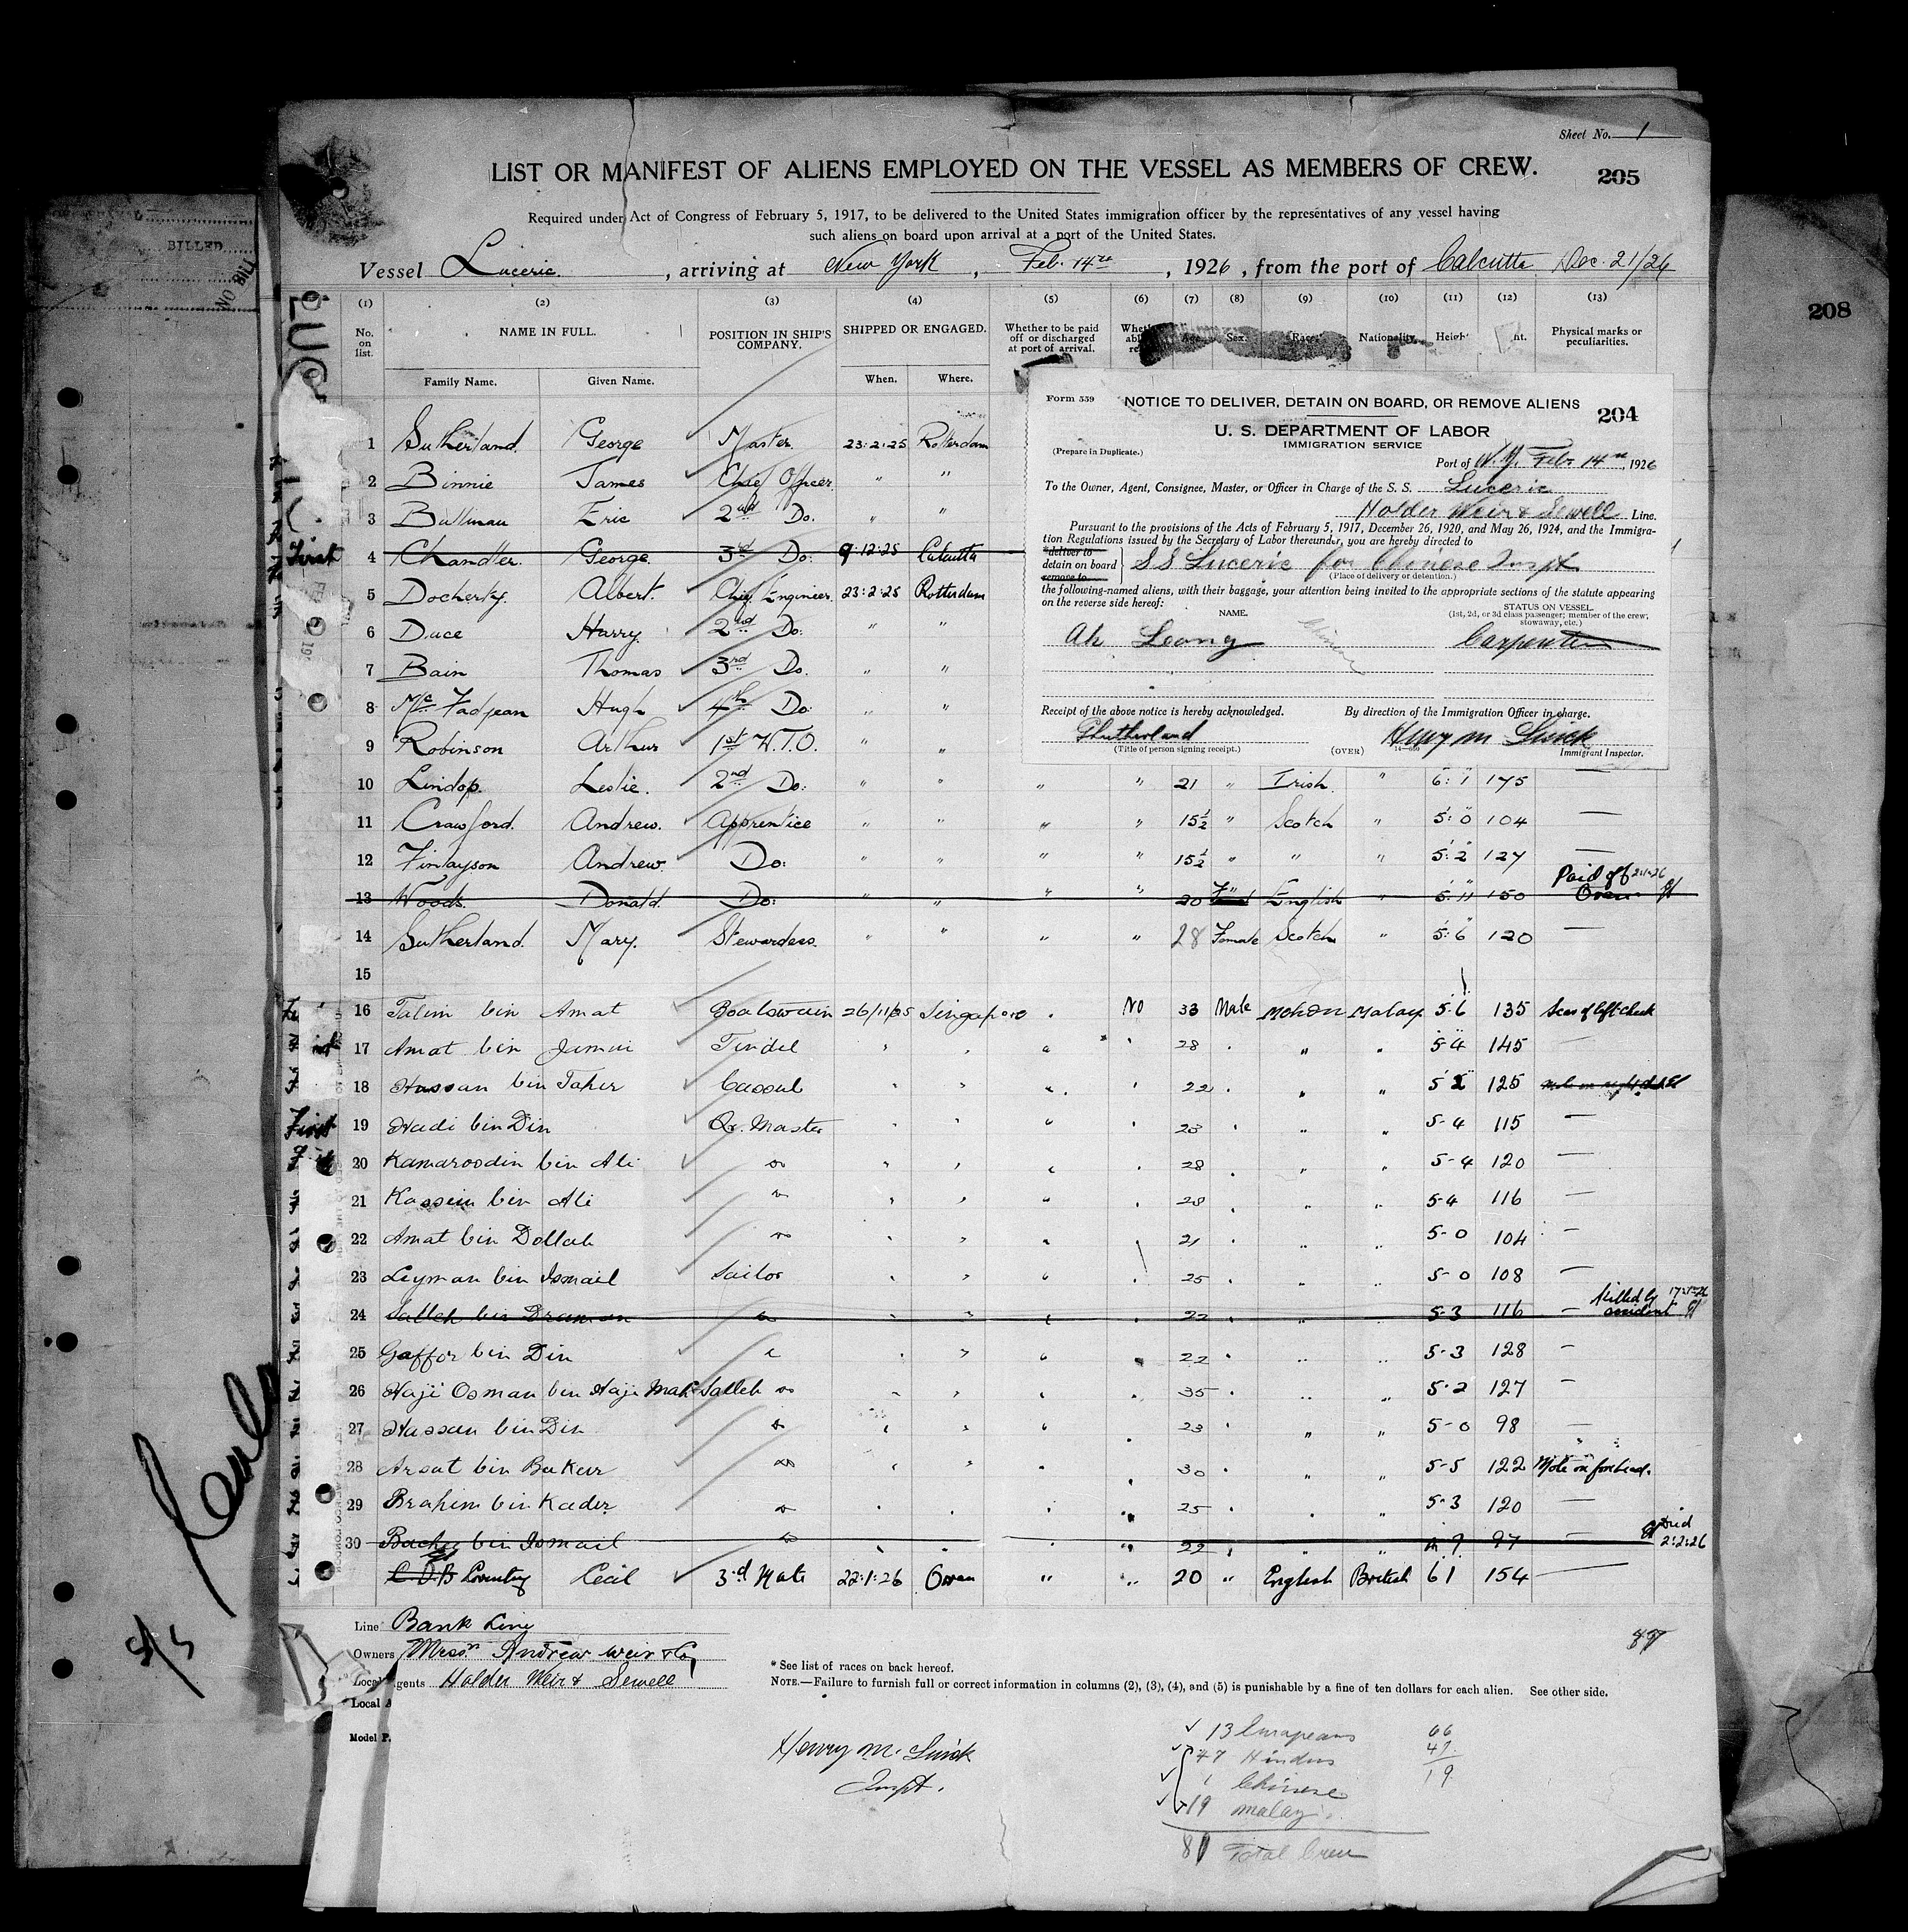 Sheet No. 1
LIST OR MANIFEST OF ALIENS EMPLOYED ON THE VESSEL AS MEMBERS OF CREW.
205
Required under Act of Congress of February 5, 1917, to be delivered to the United States immigration officer by the representatives of any vessel having
such aliens on board upon arrival at a port of the United States.
Vessel Luceric, arriving at New York, Feb. 14th, 1926, from the port of Calcutta Dec. 21/26
BILLED
NO BILL
208
(1) (2) (3) (4) (5) (6) (7) (8) (9) (10) (11) (12) (13)
No. on list. NAME IN FULL. POSITION IN SHIP'S COMPANY. SHIPPED OR ENGAGED. Whether to be paid off or discharged at port of arrival. Age. Sex. Race Nationality. Height Physical marks or peculiarities.
Family Name. Given Name. When. Where.
1 Sutherland. George Master. 23:2:25 Rotterdam
2 Binnie James Chief Officer. " "
3 Eric 2nd Do. " "
First 4 Chandler. George. 3rd Do: 9:12:25 Calcutta
5 Docherty. Albert. Chief Engineer. 23:2:25 Rotterdam
6 Duce Harry. 2nd Do: " "
7 Bain Thomas 3rd Do. " "
8 Mc Fadjean Hugh 4th Do: " "
9 Robinson Arthur 1st W.T.O. " "
Form 559
NOTICE TO DELIVER, DETAIN ON BOARD, OR REMOVE ALIENS
204
U. S. DEPARTMENT OF LABOR
IMMIGRATION SERVICE
(Prepare in Duplicate.)
Port of N.Y. Feb. 14th, 1926
To the Owner, Agent, Consignee, Master, or Officer in Charge of the S. S. Luceric
Holder Weir & Sewell Line.
Pursuant to the provisions of the Acts of February 5, 1917, December 26, 1920, and May 26, 1924, and the Immigra-
tion Regulations issued by the Secretary of Labor thereunder, you are hereby directed to
deliver to
detain on board
remove to
SS Luceric for Chinese Inspt
(Place of delivery or detention.)
the following-named aliens, with their baggage, your attention being invited to the appropriate sections of the statute appearing
on the reverse side hereof:
NAME. STATUS ON VESSEL.
(1st, 2d, or 3d class passenger; member of the crew;
stowaway, etc.)
Ah Leong Chinese Carpenter
Receipt of the above notice is hereby acknowledged. By direction of the Immigration Officer in charge.
GSutherland Henry M
(Title of person signing receipt.) (OVER) Immigrant Inspector.
10 Lindop. Leslie. 2nd Do: " " " " 21 " Irish. " 6:1 175 —
11 Crawford. Andrew. Apprentice " " " " 15½ " Scotch " 5:0 104 —
12 Finlayson Andrew. Do: " " " " 15½ " " " 5:2 127 —
13 Woods. Donald. Do: " " " " 20 " English " 5:11 150 Paid off Oran
14 Sutherland. Mary. Stewardess. " " " " 28 Female Scotch " 5:6 120 —
15
16 Talim bin Amat Boatswain 26/11/25 Singapore " No 33 Male Mohdn Malay 5·6 135 Scar of left cheek
17 Amat bin Jumai Tindel " " " " 28 " " " 5·4 145 —
18 Hassan bin Taher Cassab " " " " 22 " " " 5 2 125
First 19 Hadi bin Din Qr. Master " " " " 23 " " " 5-4 115 —
20 Kamaroodin bin Ali do " " " " 28 " " " 5-4 120 —
21 Kassein bin Ali do " " " " 28 " " " 5-4 116 —
22 Amat bin Dollah do " " " " 21 " " " 5-0 104 —
23 Leyman bin Ismail Sailor " " " " 25 " " " 5-0 108 —
24 Salleh bin Draman do " " " " 22 " " " 5-3 116 — Killed by accident
25 Gaffor bin Din do " " " " 22 " " " 5-3 128 —
26 Haji Osman bin Haji Mat Salleh do " " " " 35 " " " 5·2 127 —
27 Hassan bin Din do " " " " 23 " " " 5-0 98 —
28 Arsat bin Bakar do " " " " 30 " " " 5-5 122 Mole on forehead.
29 Brahim bin Kader do " " " " 25 " " " 5·3 120 —
30 bin Ismail do " " " " 22 " " " 97 — Died 2:2:26
Cecil 3rd Mate 22:1:26 Oran " " 20 " English British 6 1 154 —
Line Bank Line
Owners Messrs Andrew Weir & Co,
Local Agents Holder Weir & Sewell
Local A
Model P.
* See list of races on back hereof.
NOTE.—Failure to furnish full or correct information in columns (2), (3), (4), and (5) is punishable by a fine of ten dollars for each alien. See other side.
Henry M.
Inspt.
13 Europeans
47 Hindus
1 Chinese
19 Malays
Total Crew
66
47
19